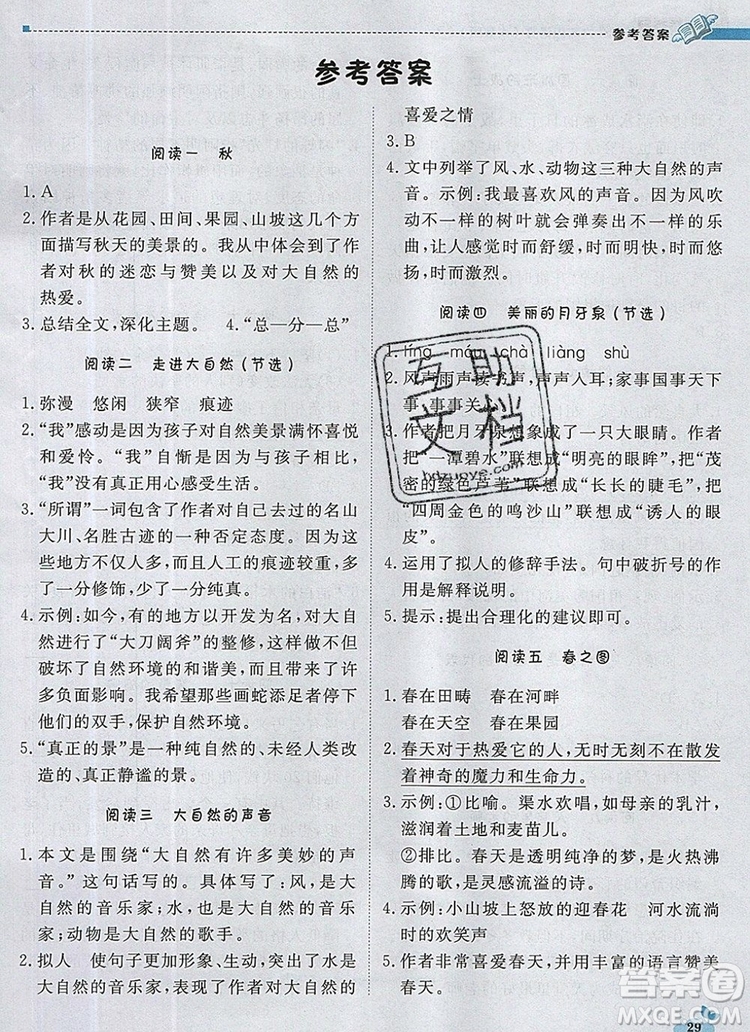 参考答案
参考答案
阅读一 秋
1. A
2. 作者是从花园、田间、果园、山坡这几个方
面描写秋天的美景的。我从中体会到了作
者对秋的迷恋与赞美以及对大自然的
热爱。
3. 总结全文，深化主题。 4.“总—分—总”
阅读二 走进大自然(节选)
1. 弥漫 悠闲 狭窄 痕迹
2. “我”感动是因为孩子对自然美景满怀喜悦
和爱怜。“我”自惭是因为与孩子相比，
“我”没有真正用心感受生活。
3. “所谓”一词包含了作者对自己去过的名山
大川、名胜古迹的一种否定态度。因为这
些地方不仅人多，而且人工的痕迹重，多了
一分修饰，少了一分纯真。
4. 示例：如今，有的地方以开发为名，对大自
然展开了“大刀阔斧”的整修，不但没有
破坏了自然环境的和谐美，而且带来了许
多负面影响。我希望这些画蛇添足者停下
他们的双手，保护自然环境。
5. “真正的景”是一种纯自然的、未经人类改
造的、真正静谧的景。
阅读三 大自然的声音
1. 本文是围绕“大自然有许多美妙的声
音。”这句话写的。具体写了：风，是大
自然的音乐家；水，也是大自然的音乐
家；动物是大自然的歌手。
2. 拟人 使句子更加形象、生动，突出了水是
大自然的音乐家，表现了作者对大自然的
喜爱之情
3. B
4. 文中列举了风、水、动物这三种大自然的
声音。示例：我最喜欢风的声音。因为风吹
动不一样的树叶就会弹奏出不一样的乐
曲，让人感觉时而舒缓，时而明快，时而悠
扬，时而激烈。
阅读四 美丽的月牙泉(节选)
1. líng chà liàng shù
2. 风声雨声读书声，声声入耳；家事国事天下
事，事事关
3. 作者把月牙泉想象成了一只大眼睛。作者
把“一潭碧水”联想成“明亮的眼眸”，把“茂
密的绿色芦苇”联想成“长长的睫毛”，把
“四周金色的鸣沙山”联想成“诱人的眼
皮”。
4. 运用了拟人的修辞手法。句中破折号的作
用是解释说明。
5. 提示：提出合理化的建议即可。
阅读五 春之图
1. 春在田畴 春在河畔
春在天空 春在果园
2. 春天对于热爱它的人，无时无刻不在散发
着神奇的魔力和生命力。
3. 示例：①比喻。渠水欢唱，如母亲的乳汁，
滋润着土地和麦苗儿。
②排比。春天是透明纯净的梦，是火热沸
腾的歌，是灵感流溢的诗。
4. 示例：小山坡上怒放的迎春花 河水流淌
时的欢笑声
5. 作者非常喜爱春天，并用丰富的语言赞美
春天。
互助
文档
hdzuoye.com
答案圈
MXQE.COM
29